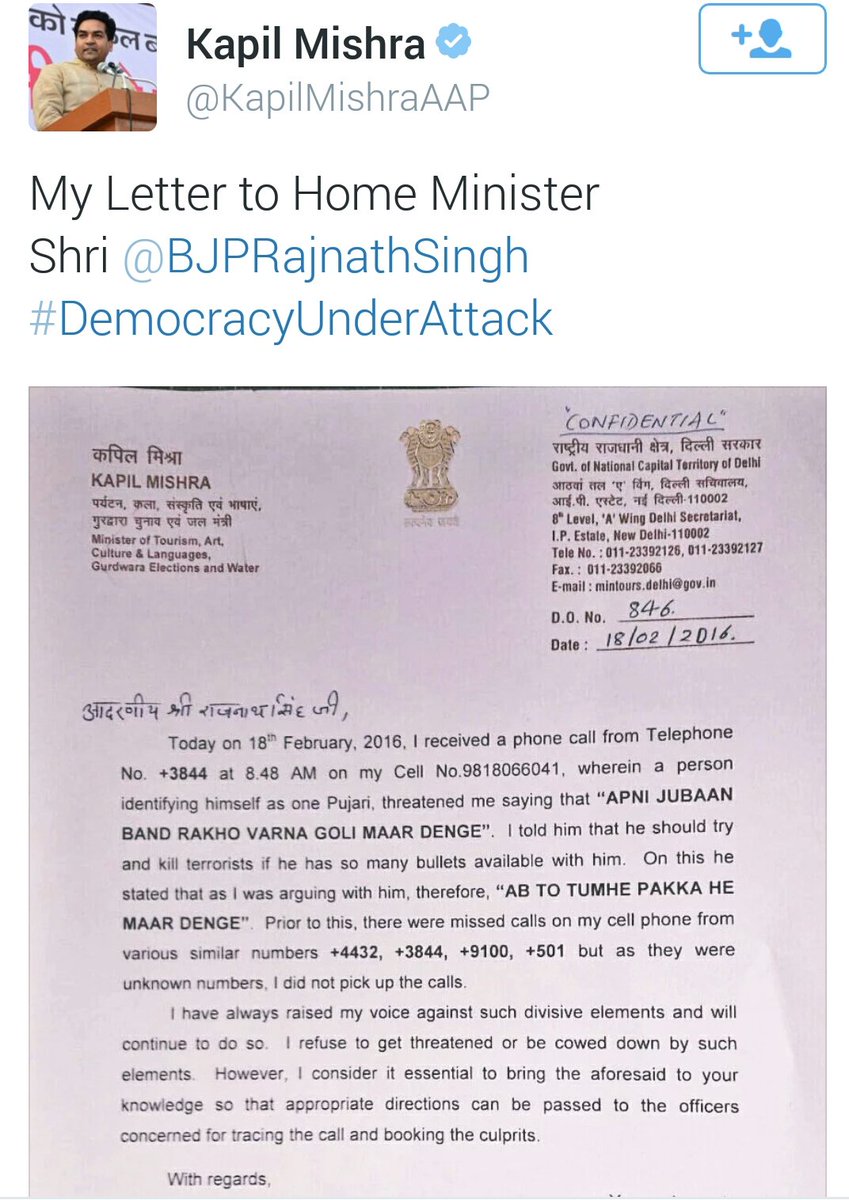 Kapil Mishra
@KapilMishraAAP
My Letter to Home Minister
Shri @BJPRajnathSingh
#DemocracyUnderAttack
"CONFIDENTIAL"
कपिल मिश्रा
KAPIL MISHRA
पर्यटन, कला, संस्कृति एवं भाषाएं,
गुरद्वारा चुनाव एवं जल मंत्री
Minister of Tourism, Art,
Culture & Languages,
Gurdwara Elections and Water
सत्यमेव जयते
राष्ट्रीय राजधानी क्षेत्र, दिल्ली सरकार
Govt. of National Capital Territory of Delhi
आठवां तल 'ए' विंग, दिल्ली सचिवालय,
आई.पी. एस्टेट, नई दिल्ली-110002
8th Level, 'A' Wing Delhi Secretariat,
I.P. Estate, New Delhi-110002
Tele No. : 011-23392126, 011-23392127
Fax. : 011-23392066
E-mail : mintours.delhi@gov.in
D.O. No. 846.
Date : 18/02/2016.
आदरणीय श्री राजनाथ सिंह जी,
Today on 18th February, 2016, I received a phone call from Telephone
No. +3844 at 8.48 AM on my Cell No.9818066041, wherein a person
identifying himself as one Pujari, threatened me saying that "APNI JUBAAN
BAND RAKHO VARNA GOLI MAAR DENGE". I told him that he should try
and kill terrorists if he has so many bullets available with him. On this he
stated that as I was arguing with him, therefore, "AB TO TUMHE PAKKA HE
MAAR DENGE". Prior to this, there were missed calls on my cell phone from
various similar numbers +4432, +3844, +9100, +501 but as they were
unknown numbers, I did not pick up the calls.
I have always raised my voice against such divisive elements and will
continue to do so. I refuse to get threatened or be cowed down by such
elements. However, I consider it essential to bring the aforesaid to your
knowledge so that appropriate directions can be passed to the officers
concerned for tracing the call and booking the culprits.
With regards,